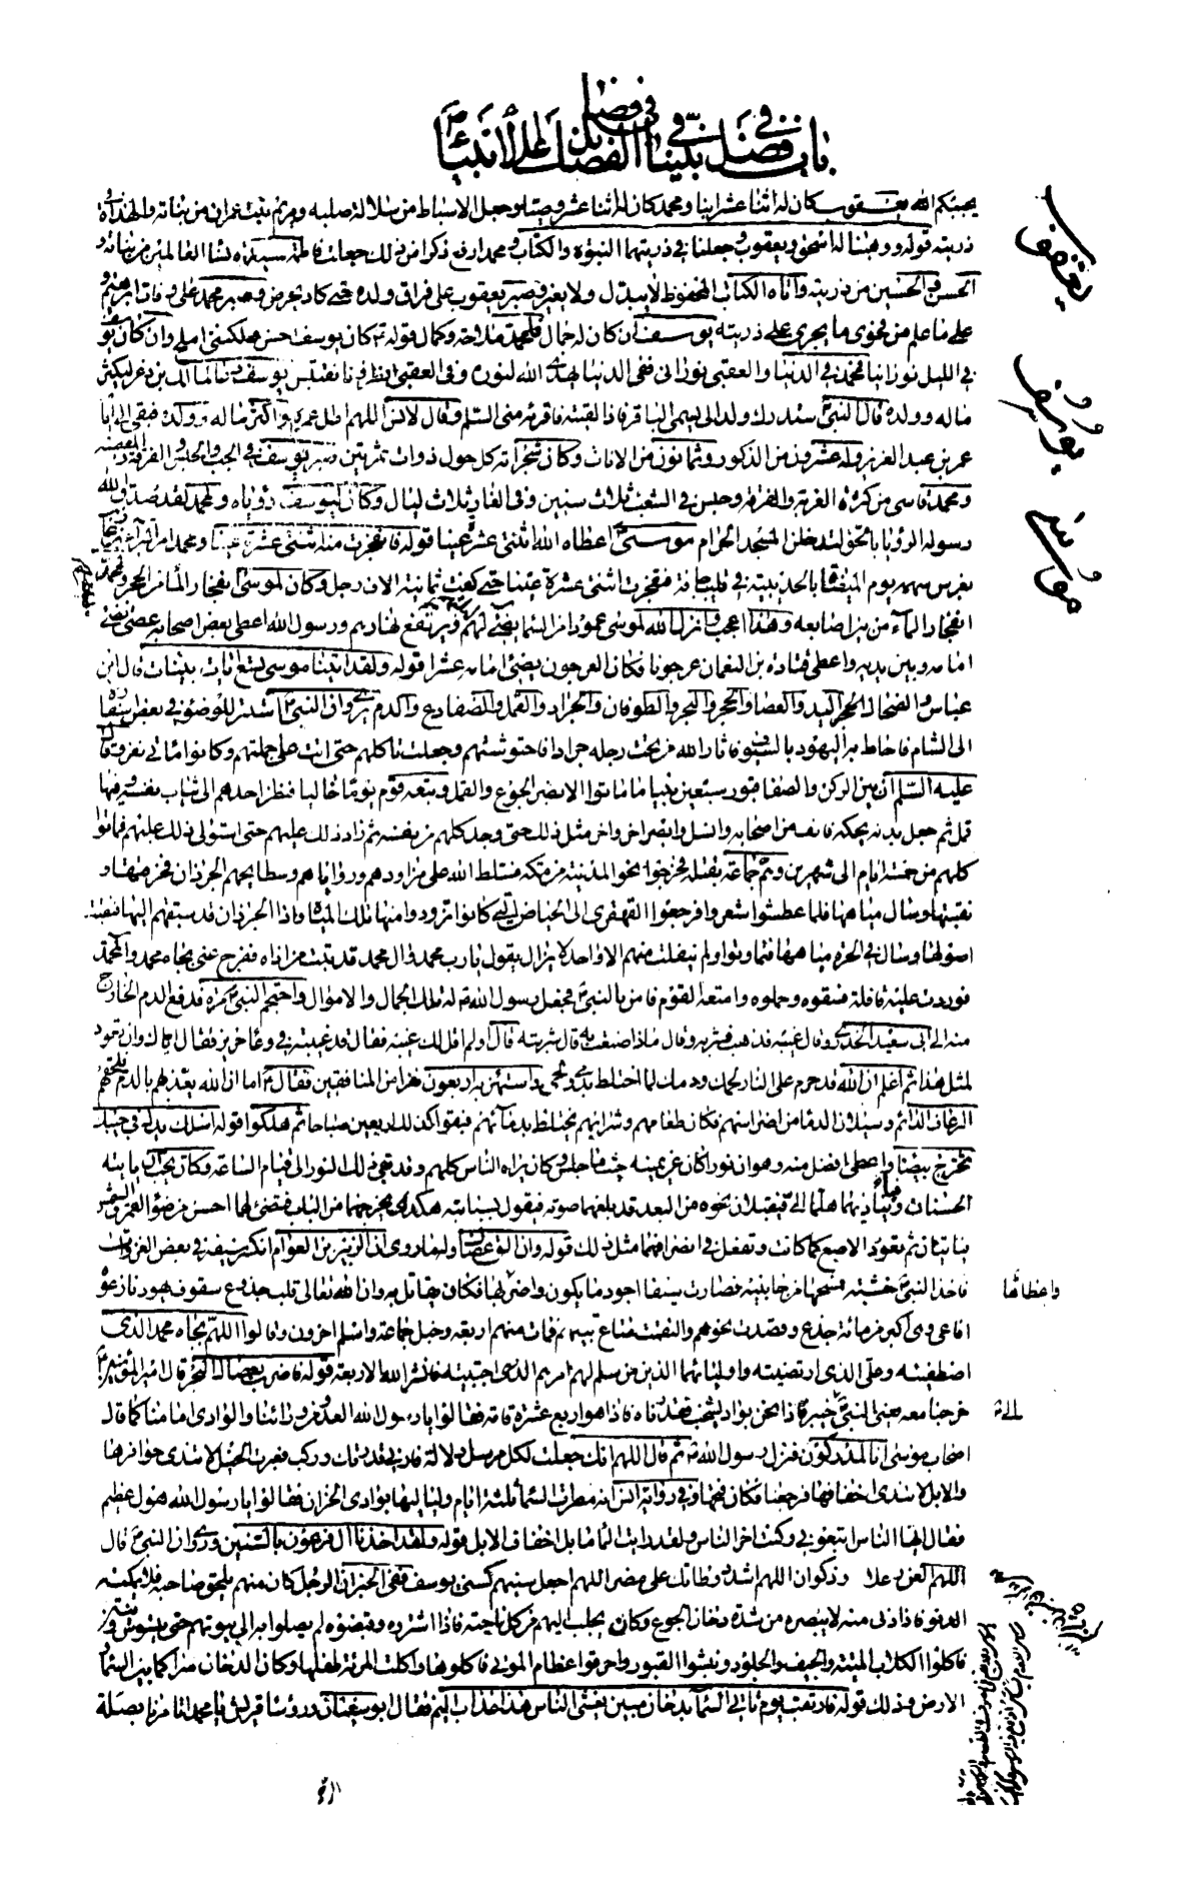 في فضل
باب في فضل نبينا في الفضائل على الأنبياء
يحببكم الله يعقوب كان له اثنا عشر ابنا ومحمد كان له اثنا عشر وصيا وجعل الاسباط من سلالة صلبه ومريم بنت عمران من بناته والهداة في
ذريته قوله ووهبنا له اسحق ويعقوب وجعلنا في ذريتهما النبوة والكتاب ومحمد ارفع ذكرا من ذلك جعلت فاطمة سيدة نساء العالمين من بناته و
الحسن والحسين من ذريته واتاه الكتاب المحفوظ لا يبدل ولا يغير فصبر يعقوب على فراق ولده حتى كاد يحرض وصبر محمد على وفات ابرهيم و
على ما علم من فحوى ما يجري على ذريته يوسف ان كان له جمال فلمحمد ملاحة وكمال قوله كان يوسف احسن ولكنني املح وان كان يوسف
في الليل نورانيا فمحمد في الدنيا والعقبى نوراني ففي الدنيا يهدي الله لنوره وفي العقبى انظرونا نقتبس يوسف دعا لمالك بن ذعر ليكثر
ماله وولده قال النبي ستدرك ولدا لي يسمى الباقر فاذا لقيته فاقرئه مني السلم وقال لانس اللهم اطل عمره واكثر ماله وولده فبقي الى ايام
عمر بن عبد العزيز وله عشرون من الذكور وثمانون من الاناث وكانت شجراته كل حول ذوات ثمرتين صبر يوسف في الجب والحبس والفرقة والمعصية
ومحمد قاسى من كثرة الغربة والفرقة وحبس في الشعب ثلاث سنين وفي الغار ثلاث ليال وكان ليوسف رؤياه ولمحمد لقد صدق الله
رسوله الرؤيا بالحق لتدخلن المسجد الحرام موسى اعطاه الله اثنتي عشر عينا قوله فانفجرت منه اثنتي عشرة عينا ومحمد امر البراء بن عازب
بغرس سهمه يوم الميضاة بالحديبية في قليب جافة فتفجرت اثنتي عشرة عينا حتى كفت ثمانية الاف رجل وكان لموسى انفجار الماء من الحجر ولمحمد
انفجار الماء من بين اصابعه وهذا اعجب وانزل الله لموسى عمودا من السماء يضيء لهم ويرتفع لهنارهم ورسول الله اعطى بعض اصحابه عصى تضيء
امامه وبين يديه واعطى قتادة بن النعمان عرجونا فكان العرجون يضيء امامه عشرا قوله ولقد اتينا موسى تسع ايات بينات قال ابن
عباس والضحاك اليد والعصا والحجر والبحر والطوفان والجراد والقمل والضفادع والدم وان النبي استتر للوضوء في بعض اسفاره
الى الشام فاحاط به اليهود بالسيوف فاثار الله من تحت رجله جرادا فاحتوشتهم وجعلت تاكلهم حتى اتت على جملتهم وكانوا مائتي نفر وقال
عليه السلم ان بين الركن والصفا قبور سبعين نبيا ما ماتوا الا بضر الجوع والقمل وتبعه قوم يوما خاليا فنظر احدهم الى ثياب نفسه وفيها
قمل ثم جعل بدنه يحكه فانف من اصحابه وانسل وابصر اخر واخر مثل ذلك حتى وجد كلهم من نفسه ثم زاد ذلك عليهم حتى استولى ذلك عليهم فماتوا
كلهم من خمسة ايام الى شهرين وهم جماعة بقتله فخرجوا نحو المدينة من مكة فسلط الله على مزاودهم ورواياهم وسطايحهم الجرذان فخرقتها و
نقبتها وسال مياهها فلما عطشوا شعروا فرجعوا القهقرى الى الحياض التي كانوا تزودوا منها تلك المياه واذا الجرذان قد سبقتهم اليها فنقبت
اصولها وسال في الحرة مياهها فتماوتوا ولم ينفلت منهم الا واحد لا يزال يقول يا رب محمد وال محمد قد تبت من اذاه ففرج عني بجاه محمد وال محمد
فوردت عليه قافلة فسقوه وحملوه وامتعة القوم فامن بالنبي فجعل رسول الله له تلك الجمال والاموال واحتجم النبي مرة فدفع الدم الخارج
منه الى ابي سعيد الخدري وقال غيبه فذهب فشربه وقال ماذا صنعت به قال شربته قال اولم اقل لك غيبه فقال قد غيبته في وعاء حريز فقال اياك وان تعود
لمثل هذا ثم اعلم ان الله قد حرم على النار لحمك ودمك لما اختلط بدمي ولحمي واستهزء به اربعون نفرا من المنافقين فقال اما ان الله يعذبهم بالدم فلحقهم
الرعاف الدائم وسيلان الدماء من اضراسهم فكان طعامهم وشرابهم يختلط بدمائهم فبقوا كذلك اربعين صباحا ثم هلكوا قوله اسلك يدك في جيبك
تخرج بيضاء واعطى افضل منه وهو ان نورا كان عن يمينه حيث ما جلس وكان يراه الناس كلهم وقد بقي ذلك النور الى قيام الساعة وكان يحب ان ياتيه
الحسنان فيناديهما هلما الي فيقبلان نحوه من البعد قد بلغهما صوته فيقول بسبابته هكذا يخرجهما من الباب فتضيء لهما احسن من ضوء القمر والشمس
ياتيان ثم تعود الاصبع كما كانت وتفعل في انصرافهما مثل ذلك قوله وان الق عصاك ولنا روي ان الزبير بن العوام انكسر سيفه في بعض الغزوات
فاخذ النبي خشبة فمسحها من جانبيه فصارت سيفا اجود ما يكون واضربها فكان يقاتل به وان الله تعالى قلب جذوع سقوف يهود نازعوه
افاعي وهي اكبر من مائة جذع وقصدت نحوهم والتقت متاع بيتهم فمات منهم اربعة وخبل جماعة واسلم اخرون وقالوا اللهم بجاه محمد الذي
اصطفيته وعلي الذي ارتضيته واوليائهما الذين من سلم لهم امرهم الذي اجتبيته فانشر الله الاربعة قوله فاضرب بعصاك البحر قال امير المؤمنين
خرجنا معه يعني النبي الى خيبر فاذا نحن بواد يشخب فقدرناه فاذا هو اربع عشرة قامة فقالوا يا رسول الله العدو من ورائنا والوادي امامنا كما قال
اصحاب موسى انا لمدركون فنزل رسول الله ثم قال اللهم انك جعلت لكل مرسل دلالة فارني قدرتك وركب فعبرت الخيل لا تندى حوافرها
والابل لا تندى اخفافها فرجعنا فكان فتحها وفي رواية انس انه مطرت السماء ثلثة ايام ولياليها بوادي الخزان فقالوا يا رسول الله هول عظيم
فقال ايها الناس اتبعوني وكنت اخر الناس ولقد رايت الماء ما بل اخفاف الابل قوله ولقد اخذنا ال فرعون بالسنين وروي ان النبي قال
اللهم العن رعلا وذكوان اللهم اشدد وطاتك على مضر اللهم اجعل سنيهم كسني يوسف ففي الخبر ان الرجل كان منهم يلحق صاحبه فلا يمكنه
الدنو فاذا دنى منه لا يبصره من شدة دخان الجوع وكان يجلب اليهم من كل ناحية فاذا اشتروه وقبضوه لم يصلوا به الى بيوتهم حتى يتسوس وينتن
فاكلوا الكلاب الميتة والجيف والجلود ونبشوا القبور واحرقوا عظام الموتى فاكلوها واكلت المرئة طفلها وكان الدخان متراكما بين السماء و
الارض وذلك قوله فارتقب يوم تاتي السماء بدخان مبين يغشى الناس هذا عذاب اليم فقال ابوسفيان ورؤساء قريش يا محمد اتامرنا بصلة
يعقوب
يوسف
موسى
واعطاها